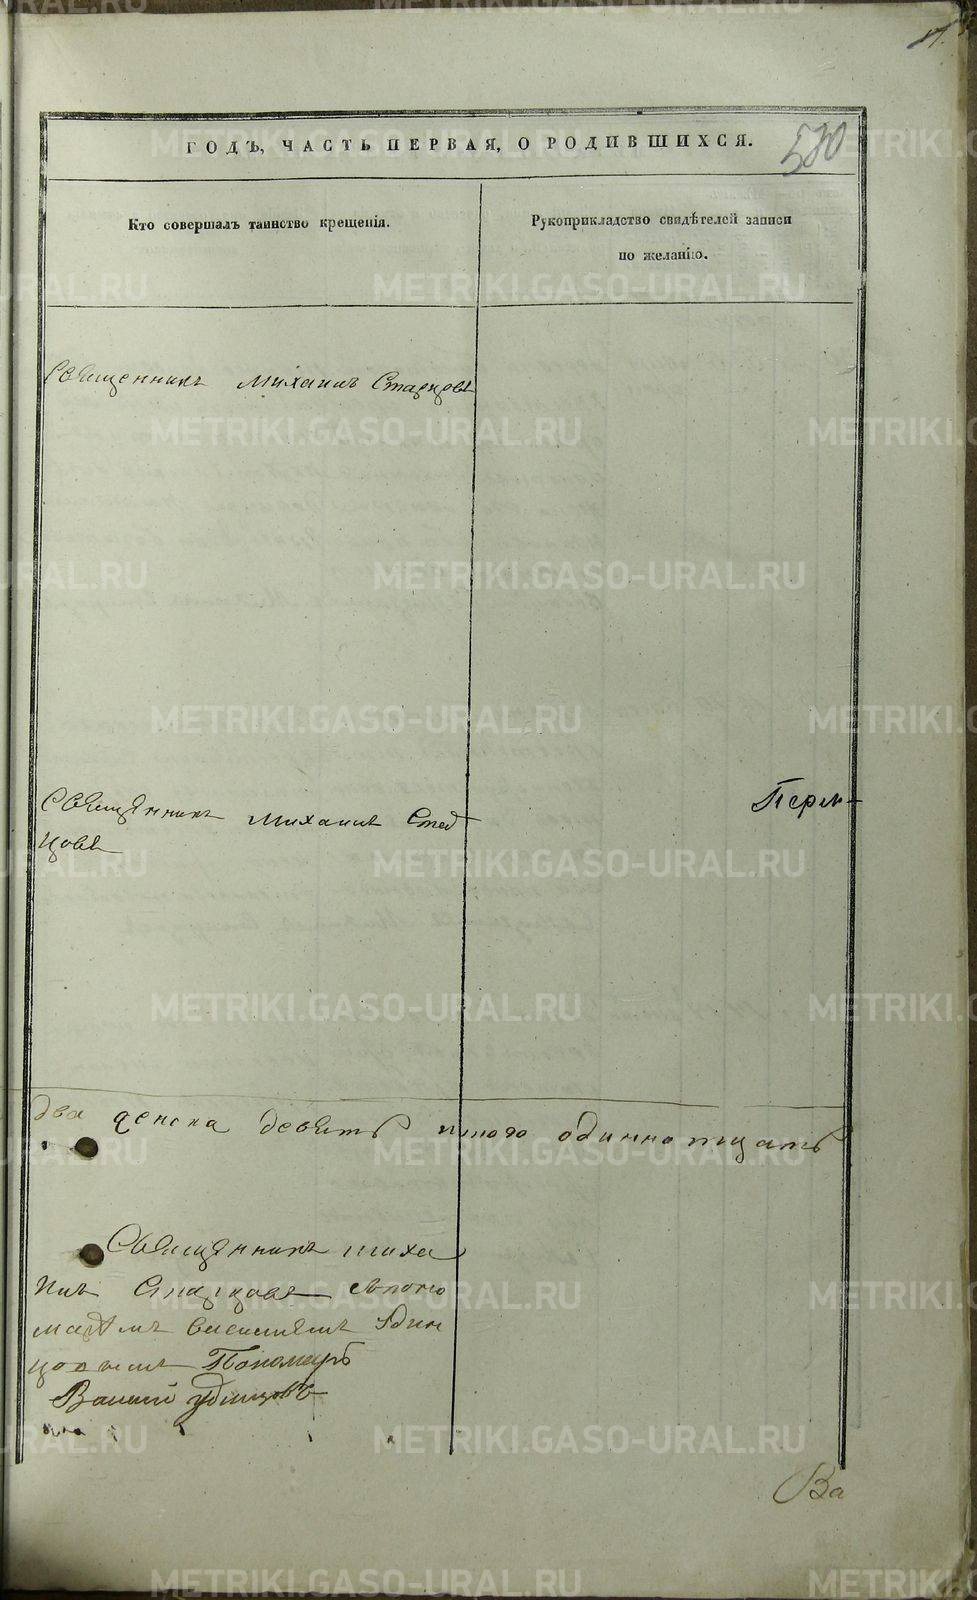 580
ГОДЪ, ЧАСТЬ ПЕРВАЯ, О РОДИВШИХСЯ.
Кто совершалъ таинство крещенія.
Рукоприкладство свидѣтелей записи
по желанію.
Священникъ Михаилъ Старцовъ
Священникъ Михаилъ Стар
цовъ
Перм-
два женска девять итого одиннатцать
Священникъ миха
илъ Старцовъ
Пономарь
Удинцовъ
Ва
METRIKI.GASO-URAL.RU